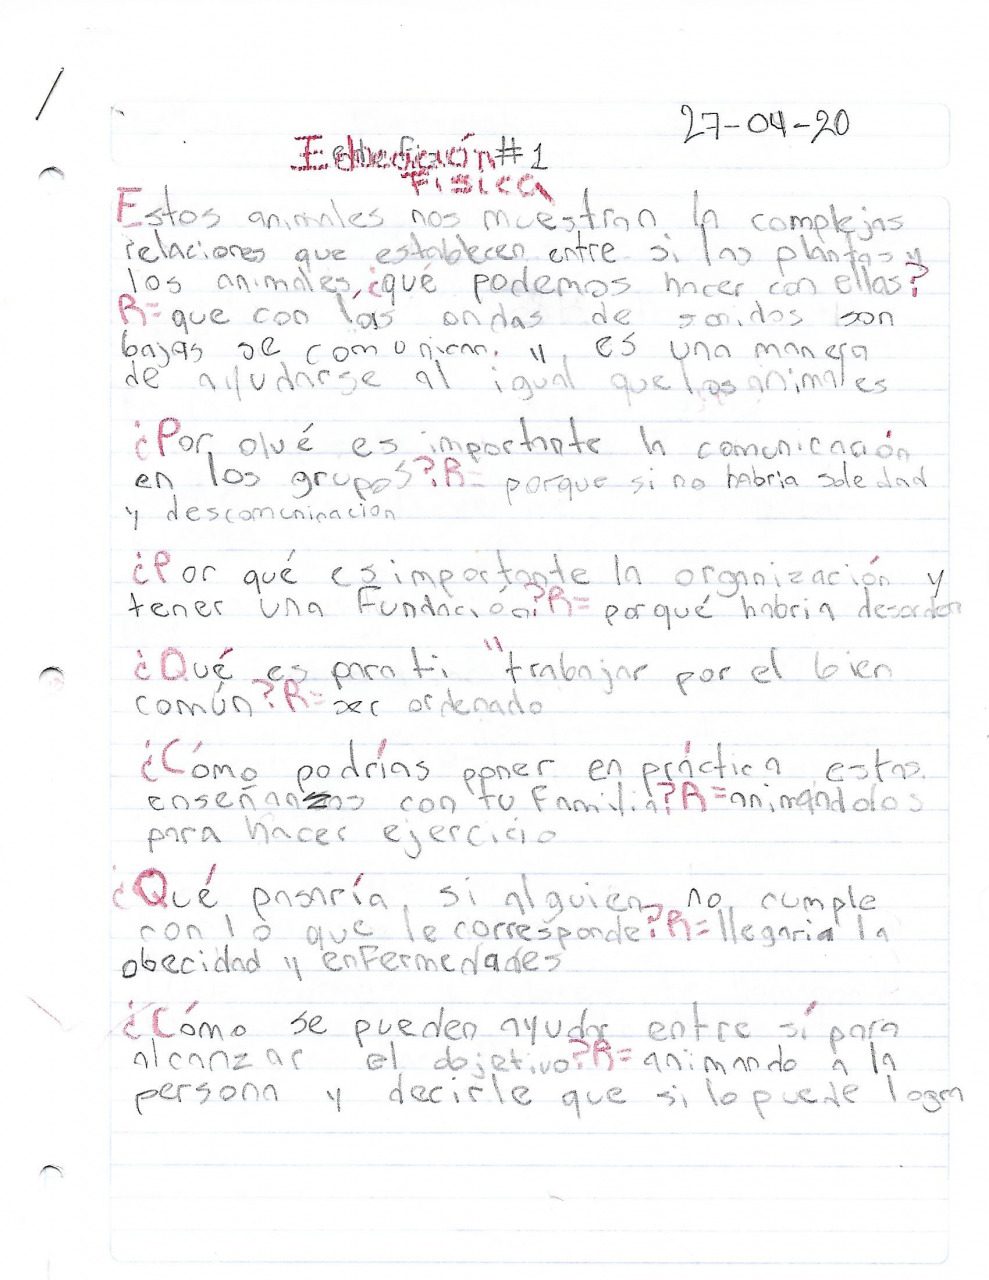 27-04-20
Educación #1
Fisica
Estos animales nos muestran la complejas
relaciones que establecen entre si las plantas y
los animales, ¿qué podemos hacer con ellas?
R= que con las ondas de sonidos son
bajas se comunican. y es una manera
de ayudarse al igual que los animales
¿Por qué es importante la comunicación
en los grupos? R= porque si no habria soledad
y descomuninacion
¿Por qué es importante la organización y
tener una Fundación? R= porqué habria desorden
¿Qué es para ti "trabajar por el bien
común? R= ser ordenado
¿Cómo podrías poner en práctica estas
enseñanzas con tu Familia? R= animándolos
para hacer ejercicio
¿Qué pasaría, si alguien no cumple
con lo que le corresponde? R= llegaria la
obecidad y enFermedades
¿Cómo se pueden ayudar entre sí para
alcanzar el objetivo? R= animando a la
persona y decirle que si lo puede lograr